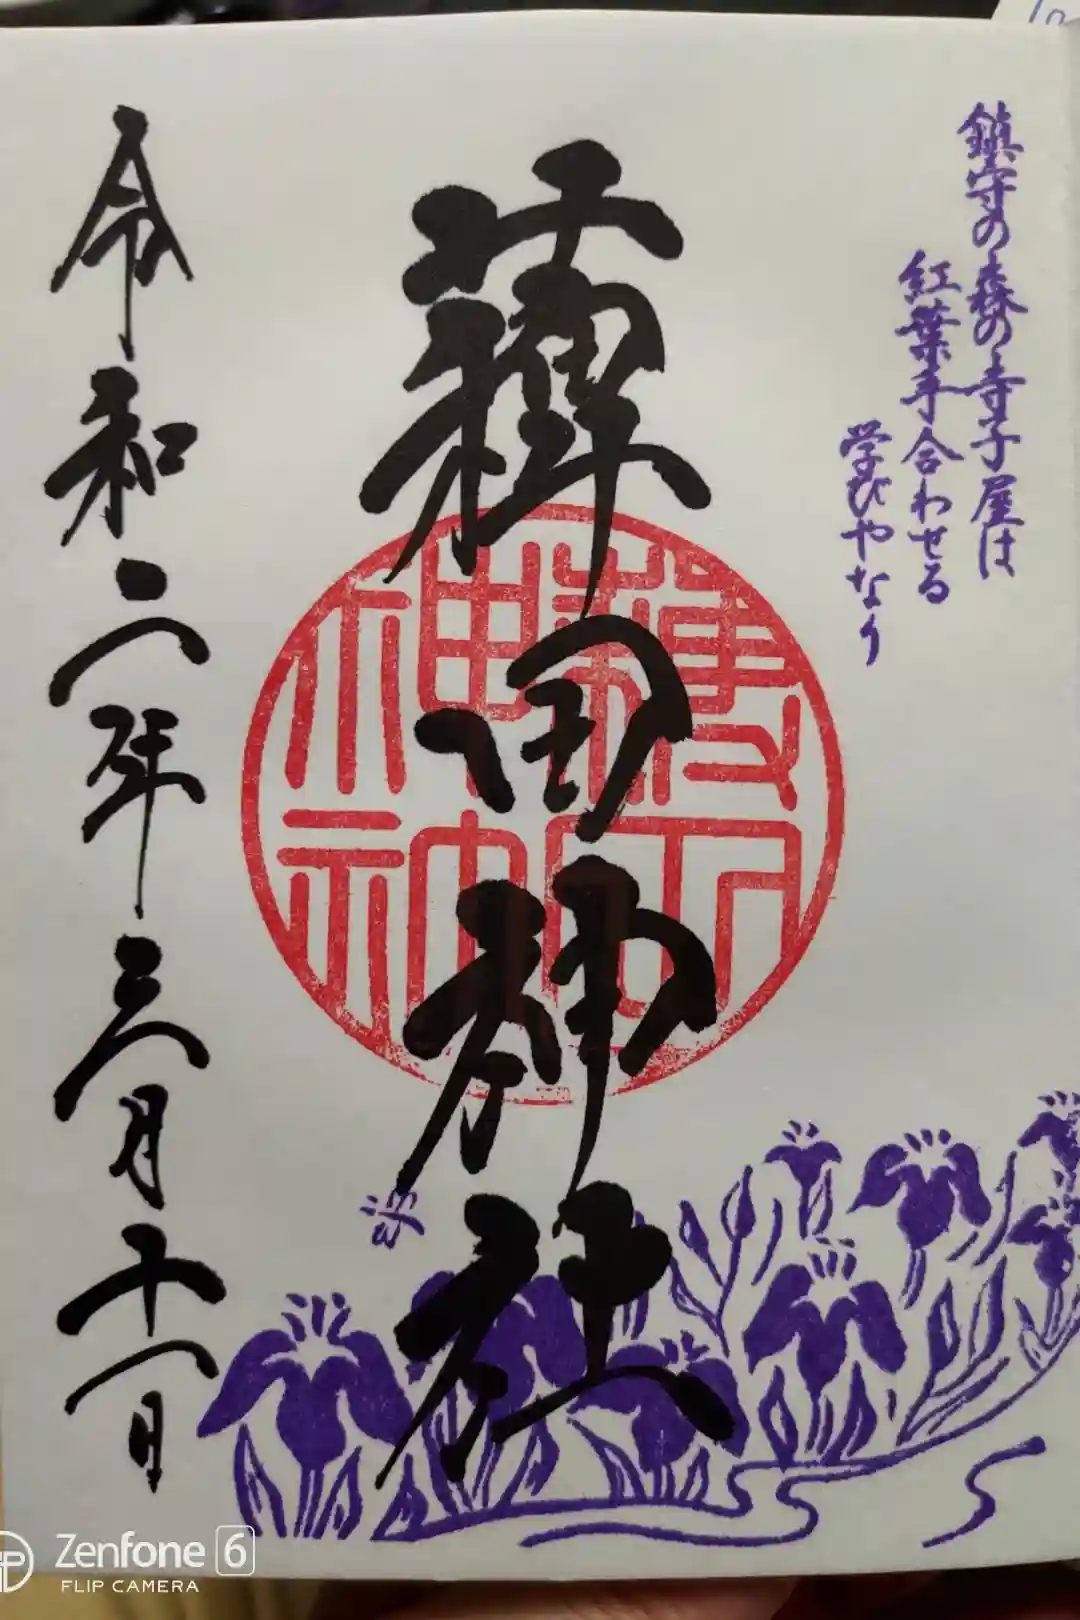 鎮守の森の寺子屋は
紅葉手合わせる
学びやなり
薭田神社
令和二年三月十一日
Zenfone 6
FLIP CAMERA